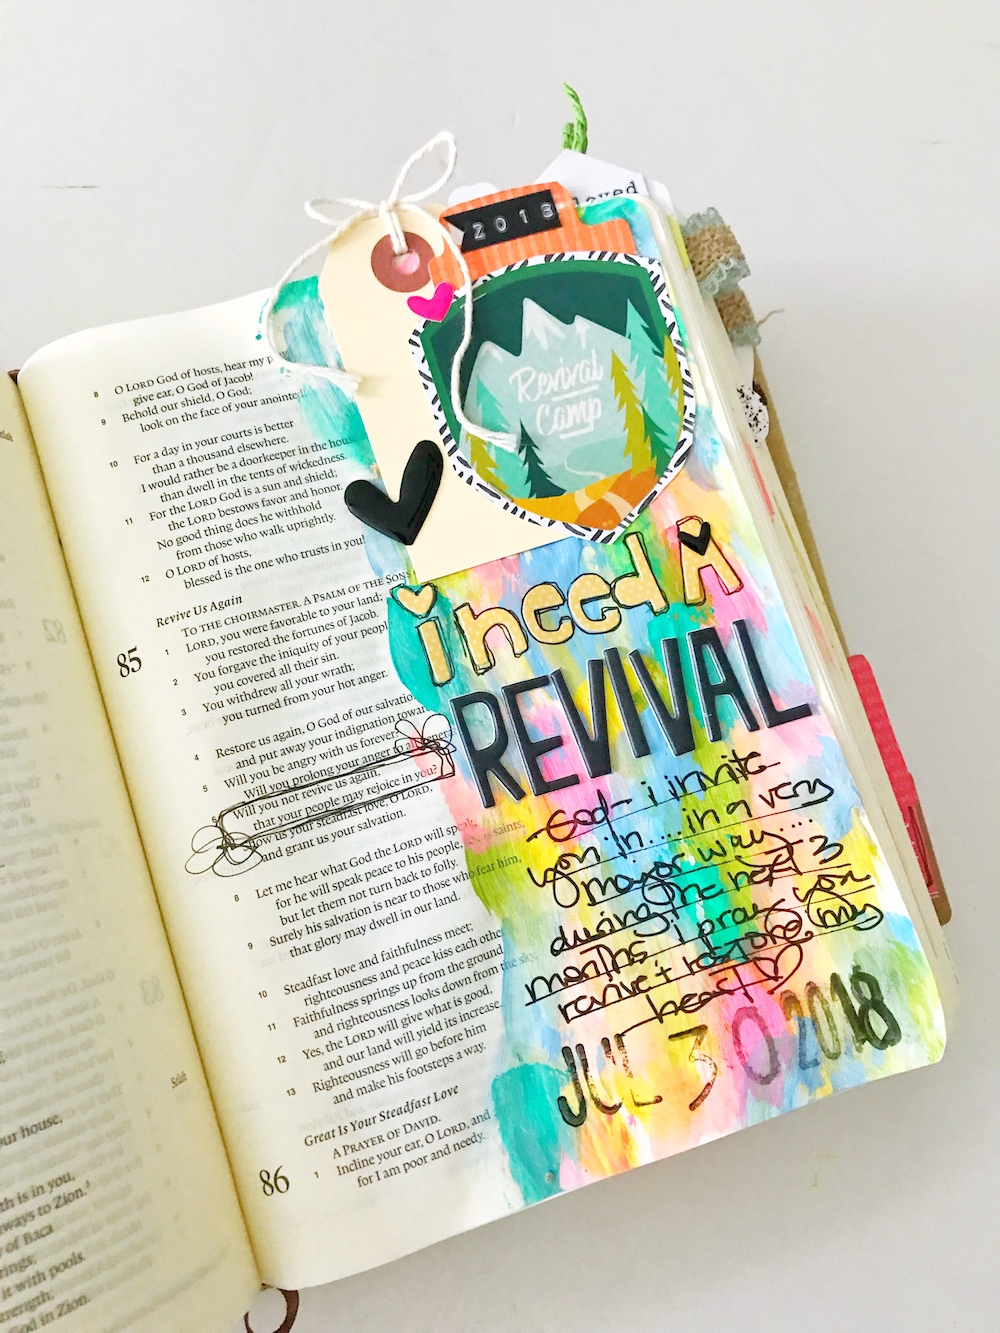 Selah
82
83
Selah
our house,
th is in you,
ways to Zion.
y of Baca
rings;
it with pools
rength;
God in Zion.
8 O LORD God of hosts, hear my p
give ear, O God of Jacob!
9 Behold our shield, O God;
look on the face of your anointed
10 For a day in your courts is better
than a thousand elsewhere.
I would rather be a doorkeeper in the house
than dwell in the tents of wickedness.
11 For the LORD God is a sun and shield;
the LORD bestows favor and honor.
No good thing does he withhold
from those who walk uprightly.
12 O LORD of hosts,
blessed is the one who trusts in you!
Revive Us Again
85 TO THE CHOIRMASTER. A PSALM OF THE SONS
1 LORD, you were favorable to your land;
you restored the fortunes of Jacob.
2 You forgave the iniquity of your peopl
you covered all their sin.
3 You withdrew all your wrath;
you turned from your hot anger.
4 Restore us again, O God of our salvatio
and put away your indignation towar
5 Will you be angry with us forever?
Will you prolong your anger to all
6 Will you not revive us again,
that your people may rejoice in you?
Show us your steadfast love, O LORD,
and grant us your salvation.
8 Let me hear what God the LORD will speak,
for he will speak peace to his people, saints,
but let them not turn back to folly.
9 Surely his salvation is near to those who fear him,
that glory may dwell in our land.
10 Steadfast love and faithfulness meet;
righteousness and peace kiss each othe
11 Faithfulness springs up from the ground
and righteousness looks down from the sky.
12 Yes, the LORD will give what is good,
and our land will yield its increase.
13 Righteousness will go before him
and make his footsteps a way.
Great Is Your Steadfast Love
86 A PRAYER OF DAVID.
1 Incline your ear, O LORD, and
for I am poor and needy.
loved
2018
Revival
Camp
i need A
REVIVAL
- God - i invite
you in .... in a very
major way ....
during the next 3
months. I pray you
revive + restore my
heart
JUL 30 2018